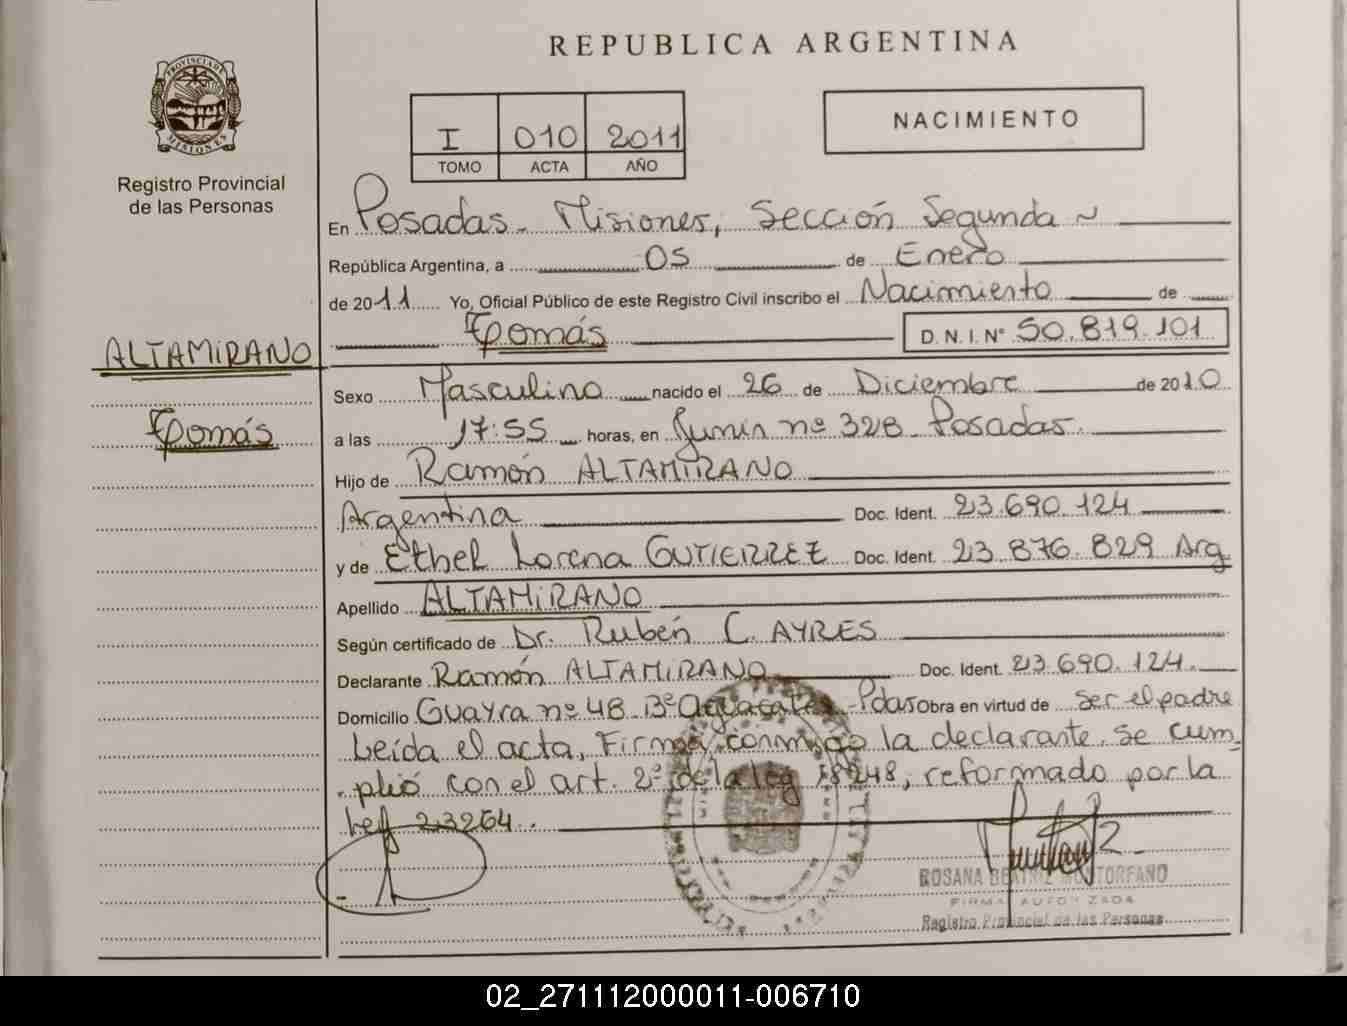 REPUBLICA ARGENTINA
PROVINCIA DE MISIONES
Registro Provincial
de las Personas
I 010 2011
TOMO ACTA AÑO
NACIMIENTO
En Posadas - Misiones, Sección Segunda
República Argentina, a 05 de Enero
de 2011 Yo, Oficial Público de este Registro Civil inscribo el Nacimiento de
Tomás D.N.I. Nº 50.819.101
ALTAMIRANO
Tomás
Sexo Masculino nacido el 26 de Diciembre de 2010
a las 17:55 horas, en Junín nº 328 Posadas.
Hijo de Ramón ALTAMIRANO
Argentina Doc. Ident. 23.690.124
y de Ethel Lorena GUTIERREZ Doc. Ident. 23.876.829 Arg
Apellido ALTAMIRANO
Según certificado de Dr. Rubén C. AYRES
Declarante Ramón ALTAMIRANO Doc. Ident. 23.690.124.
Domicilio Guayra nº 48 Bº Aguacates Pdas Obra en virtud de ser el padre
Leída el acta, Firma conmigo la declarante. Se cum
plió con el art. 2º de la ley 18248, reformado por la
Ley 23264.
ROSANA BEATRIZ
FIRMA AUTORIZADA
Registro Provincial de las Personas
02_271112000011-006710